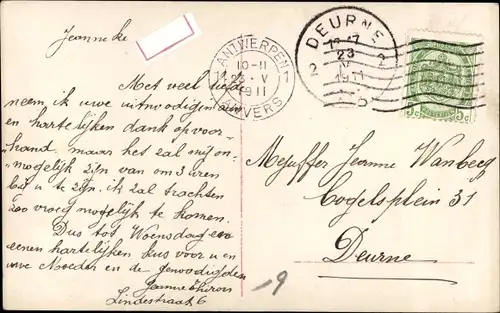 Jeanneke
Met veel liefde
neem ik uwe uitnoodiging aan
en hartelijken dank op voor-
hand, maar het zal mij on-
mogelijk zijn van om 3 uren
bij u te zijn, ik zal trachten
zoo vroeg mogelijk te komen.
Dus tot Woensdag
eenen hartelijken kus voor u en
uwe Moeder en de genoodigden
Jeanne
Lindestraat 6
ANTWERPEN 1
10-11
23 - V
1911
ANVERS
DEURNE
23
V
1911
2 2
5c 5c
Mejuffer Jeanne Wanbecq
Cogelsplein 31
Deurne
9